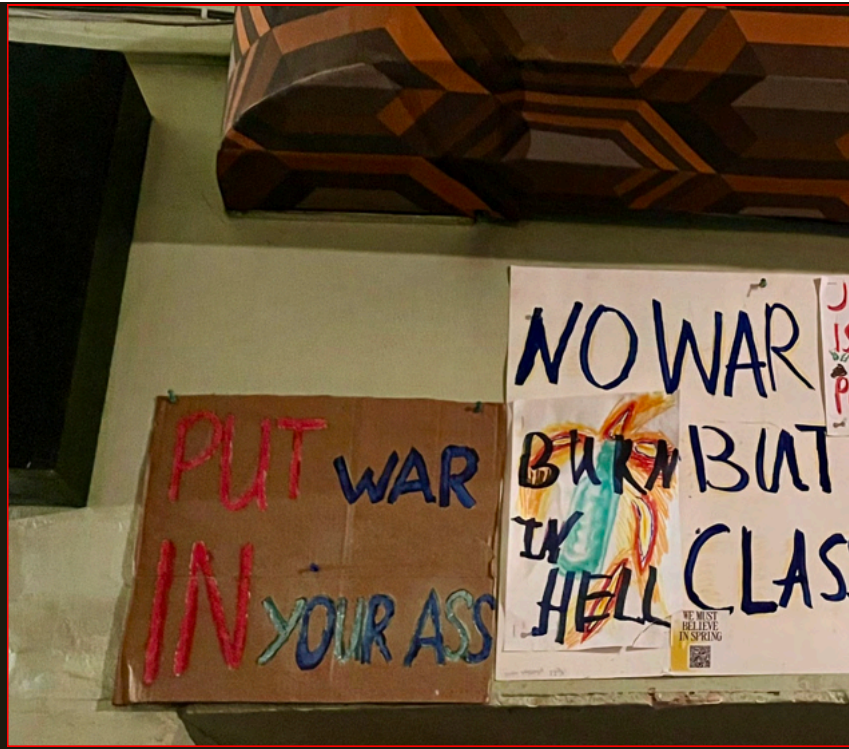 PUT WAR
IN YOUR ASS
NO WAR
BUT
CLASS
BURN
IN
HELL
WE MUST
BELIEVE
IN SPRING